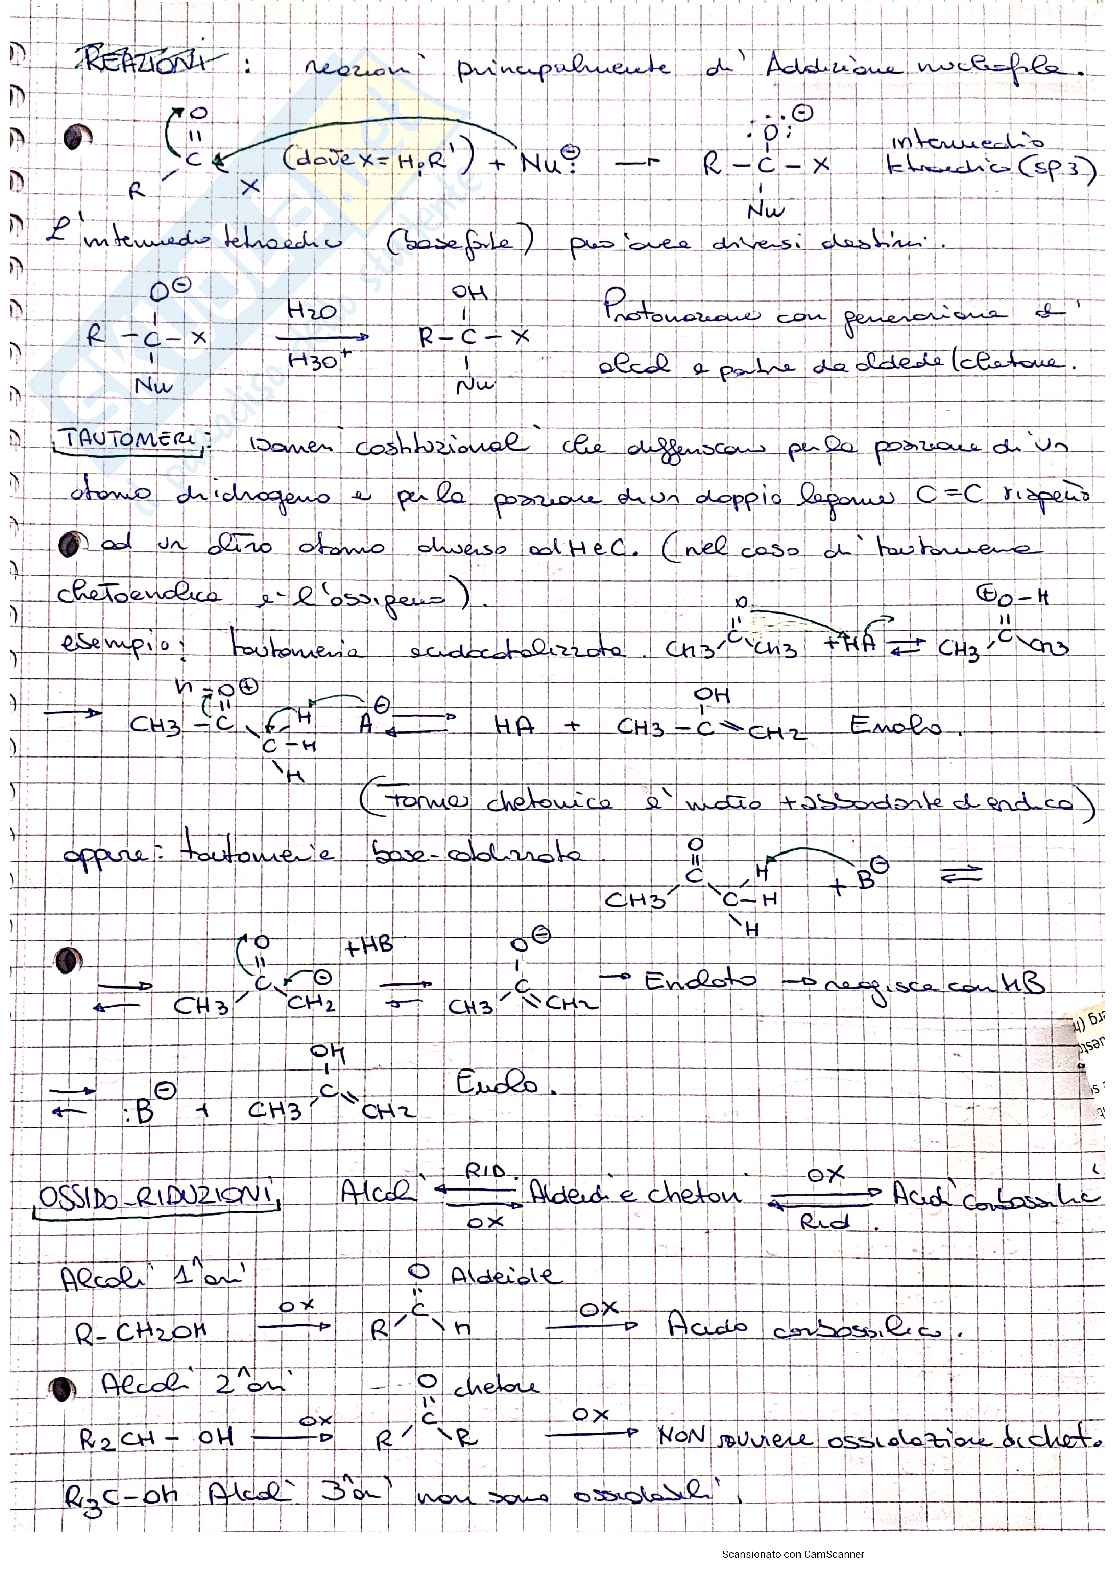 REAZIONI : reazioni principalmente di Addizione nucleofila.
O
C (dove X = H, R') + Nu⊖: → R – C – X intermedio
R X Nu tetraedico (sp3)
L'intermedio tetraedrico (base forte) può avere diversi destini.
O⊖ OH
R – C – X H2O R – C – X Protonazione con generazione di
Nu H3O+ Nu alcol a partire da aldeide/chetone.
TAUTOMERI: isomeri costituzionali che differiscono per la posizione di un
atomo di idrogeno e per la posizione di un doppio legame C=C rispetto
ad un altro atomo diverso ad H e C. (nel caso di tautomeria
chetoenolica è l'ossigeno).
esempio: tautomeria acidocatalizzata. CH3 C O CH3 + HA ⇌ CH3 C ⊕O–H CH3
→ CH3 – C H–O⊕ C–H H H A⊖ ⇌ HA + CH3 – C OH = CH2 Enolo.
(Forma chetonica è molto + abbondante di enolica)
oppure: tautomeria base-catalizzata.
O
CH3 C C–H H H + B⊖ ⇌
⇌ CH3 C O CH2⊖ +HB ⇌ CH3 C O⊖ = CH2 → Enolato → reagisce con HB
⇌ :B⊖ + CH3 C OH = CH2 Enolo.
OSSIDO-RIDUZIONI Alcoli RID. OX Aldeidi e chetoni OX Rid. Acidi carbossilic
Alcoli 1^ari O Aldeide
R–CH2OH OX → R C H OX → Acido carbossilico.
Alcoli 2^ari O chetone
R2CH–OH OX → R C R OX → NON avviene ossidazione di chet.
R3C–OH Alcoli 3^ari non sono ossidabili.
Scansionato con CamScanner